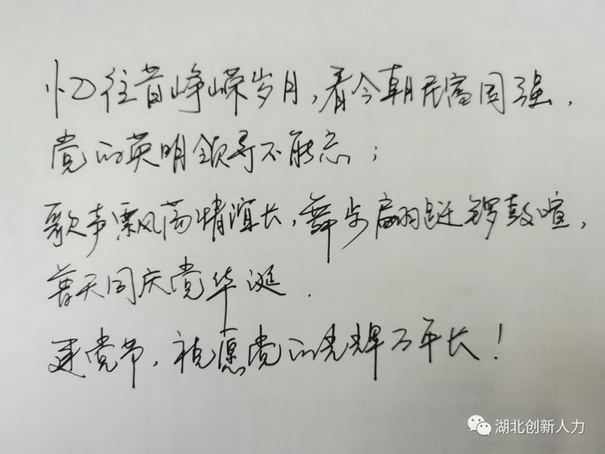 忆往昔峥嵘岁月，看今朝民富国强，
党的英明领导不能忘；
歌声飘荡情谊长，舞步翩跹锣鼓喧，
普天同庆党华诞．
建党节，祝愿党的光辉万年长！
湖北创新人力